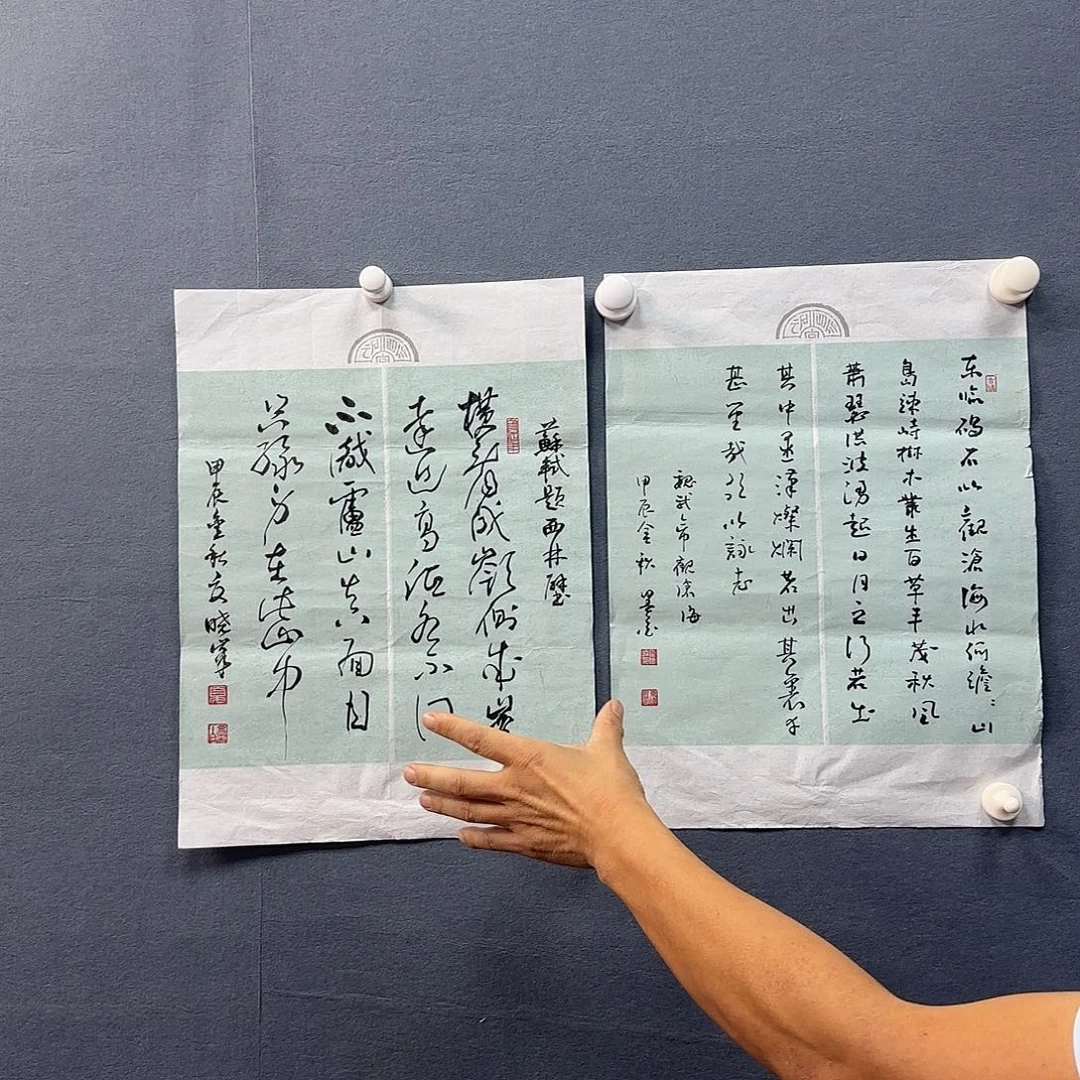 东临碣石以觀滄海水何澹〻山
島竦峙樹木叢生百草丰茂秋風
蕭瑟洪波湧起日月之行若出
其中星漢燦爛若出其裏幸
甚至哉歌以詠志
魏武帝觀滄海
甲辰金秋
蘇軾題西林壁
橫看成嶺側成峯
遠近高低各不同
不識廬山真面目
只緣身在此山中
甲辰金秋夏曉峯